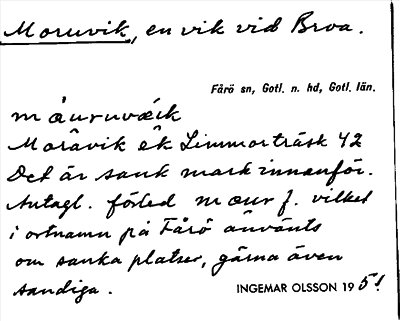 Moruvik, en vik vid Broa.
Fårö sn, Gotl. n. hd, Gotl. län.
Moråvik ék Limmorträsk 42
Det är sank mark innanför.
Antagl. förled mour f. vilket
i ortnamn på Fårö använts
om sanka platser, gärna även
sandiga.
INGEMAR OLSSON 1951